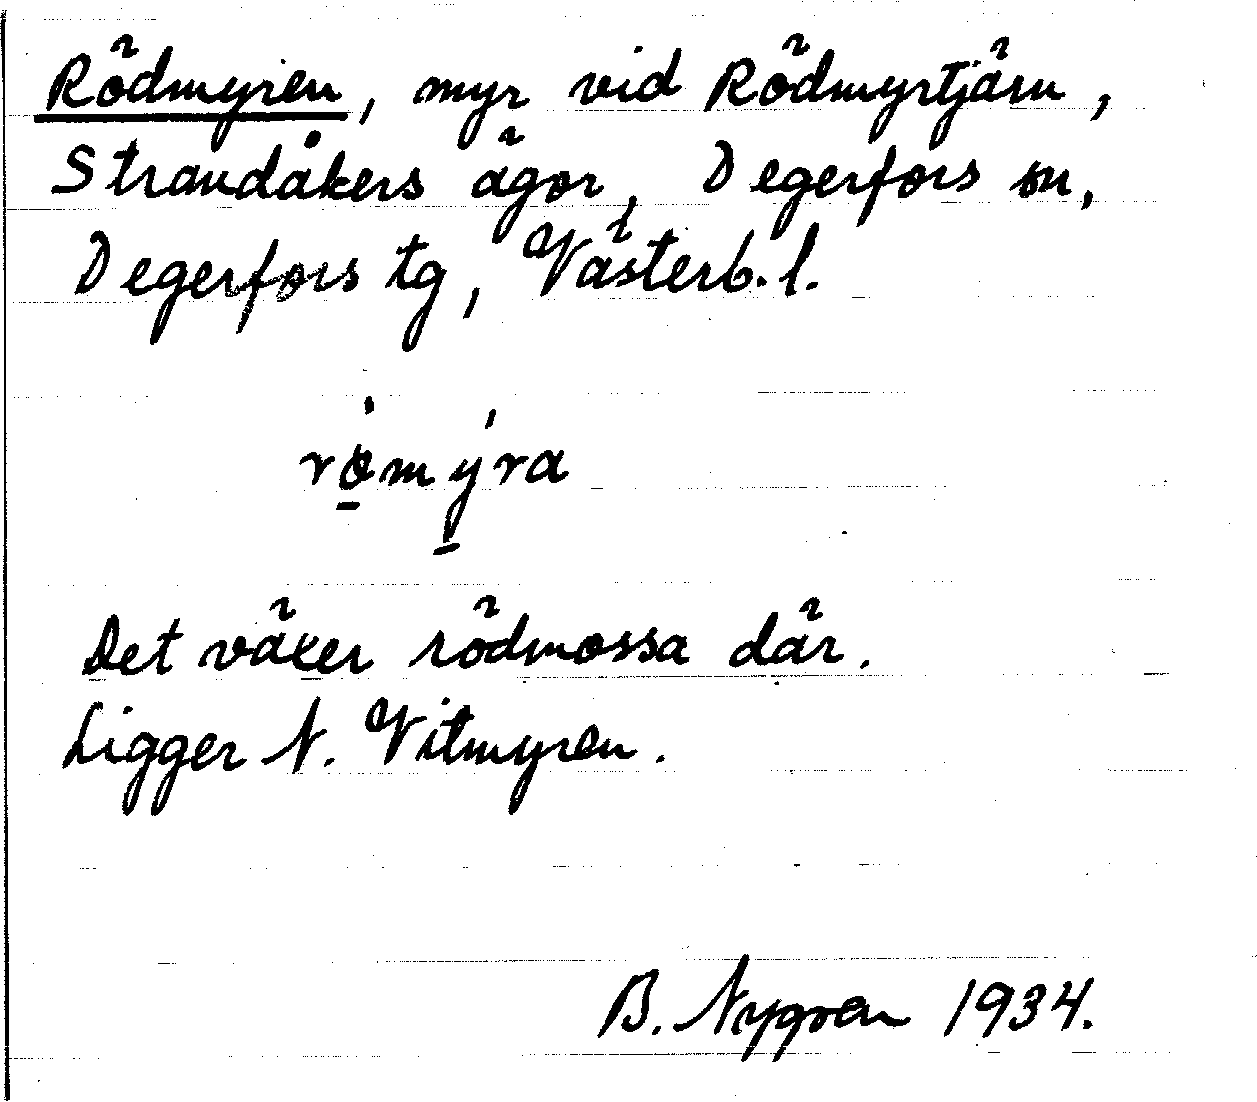 Rödmyren, myr vid Rödmyrtjärn,
Strandåkers ägor, Degerfors sn,
Degerfors tg, Västerb. l.
rö̱mý̱ra
Det växer rödmossa där.
Ligger N. Vitmyren.
B. Nygren 1934.